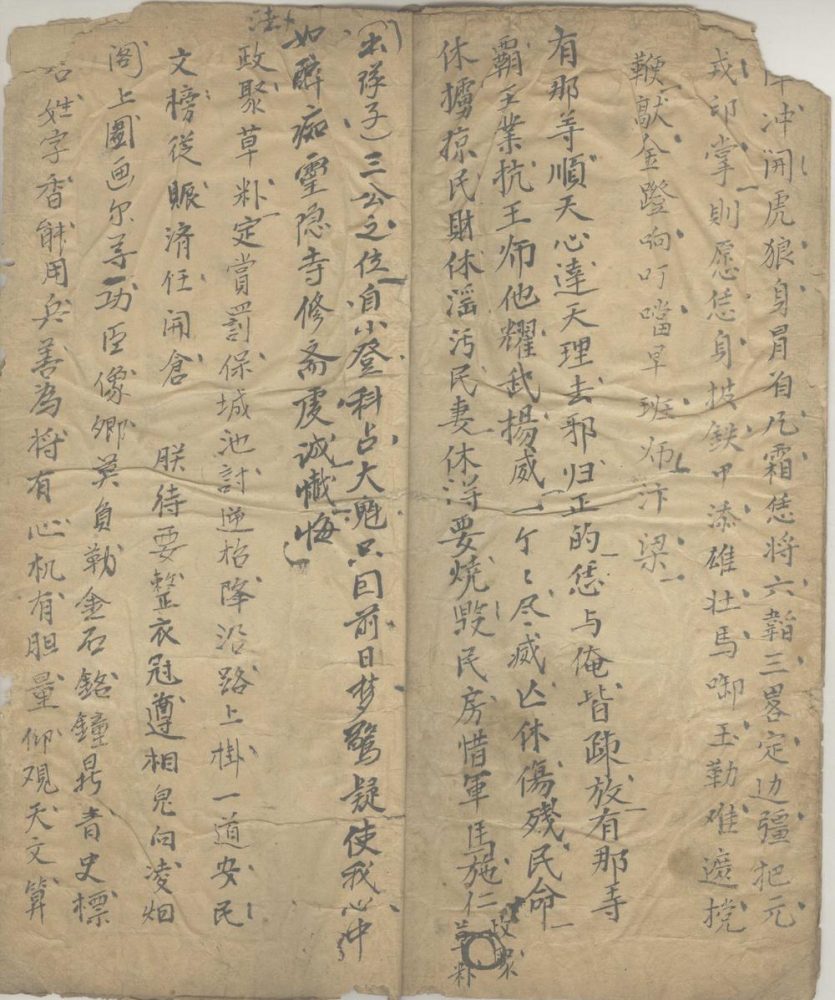 冲開虎狼身冒有凡霜恁将六韜三畧定边疆把元
戎印掌則愿恁身披鉄甲添雄壮馬啣玉勒难遮挡
鞭敲金蹬响叮噹早班师汴梁
有那等順天心達天理去邪归正的恁与俺皆疎放有那等
霸王業抗王师他耀武揚威一个〻尽威亡休傷殘民命
休擄掠民財休滛污民妻休得要焼毁民房惜軍馬施仁
政聚
草料
(出隊子)三公之位自小登科占大魁只因前日梦驚疑使我心中
如醉痴靈隐寺修斋虔诚懺悔
法
政聚草料定賞罰保城池討逆招降沿路上掛一道安民
文榜従賑済任開倉 朕待要整衣冠遵相皃向凌烟
阁上圖画尔等功臣像卿莫負勒金石銘鐘鼎青史標
名姓字香能用兵善為将有心机有胆量仰观天文算